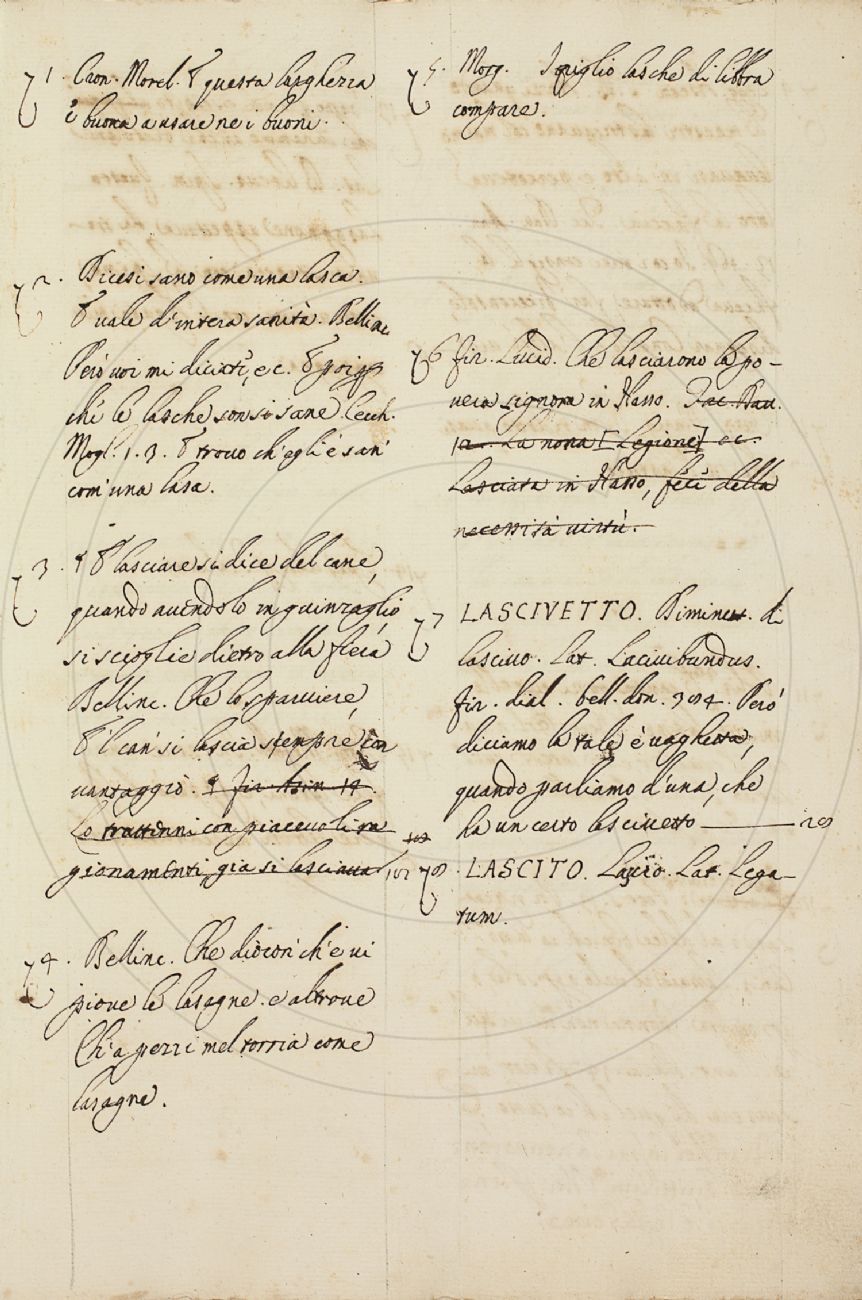 1. Cron. Morel. E questa larghezza
è buona a usare ne i buoni.
2. Dicesi sano come una lasca.
E vale d'intera sanità. Bellinc.
Però voi mi diciati, ec. E poi
chè le lasche son sì sane Cecch.
Mogl. 1. 3. E trovo ch'egli è san'
com'una lasca.
3. E lasciare si dice del cane,
quando avendolo in guinzaglio
si scioglie dietro alla fiera
Bellinc. Che lo sparviere,
E 'l can' si lascia sempre con
vantaggio. Fir. Asin. 14.
Lo trattenni con piacevoli ra
gionamenti, già si lasciava 102
4. Bellinc. Che
piove le lasagne. e altrove
Ch'a pezzi mel torria come
lasagne.
5. Morg. I piglio lasche di libbra
compare.
6 Fir. Lucid. Che lasciarono la po-
vera signora in Nasso. Tac. Dav.
La nona [Legione] ec.
Lasciata in Nasso, fece della
necessità virtù.
7 LASCIVETTO. Diminut. di
lascivo. Lat. Lacivibundus.
Fir. dial. bell. don. 394. Però
diciamo la tale è vaghetta,
quando parliamo d'una, che
ha un certo lascivetto
8. LASCITO. Lascio. Lat. Lega-
tum.